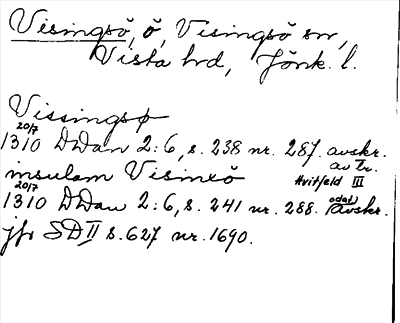 Visingsö, ö, Visingsö sn,
Vista hd, Jönk. l.
Vissingsø
20/7
1310 DDan 2:6, s. 238 nr. 287. avskr.
av tr.
insulam Visinxö Hvitfeld III
20/7
1310 DDan 2:6, s. 241 nr. 288. odat. avskr.
jfr SD II s. 627 nr. 1690.